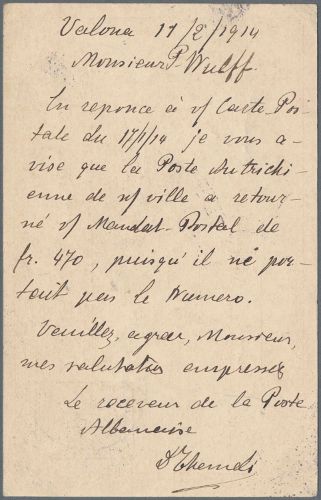 Valona 11/2/1914
Monsieur P Wulff.
En reponce à v/ Carte Pos-
tale du 17/1/14 je vous a-
vise que la Poste Autrichi-
enne de n/ ville a retour-
né v/ Mandat-Postal de
fr. 470, puisqu'il ne por-
tait pas le Numero.
Veuillez, agreer, Monsieur,
mes salutation empressés
Le receveur de la Poste
Albanaise